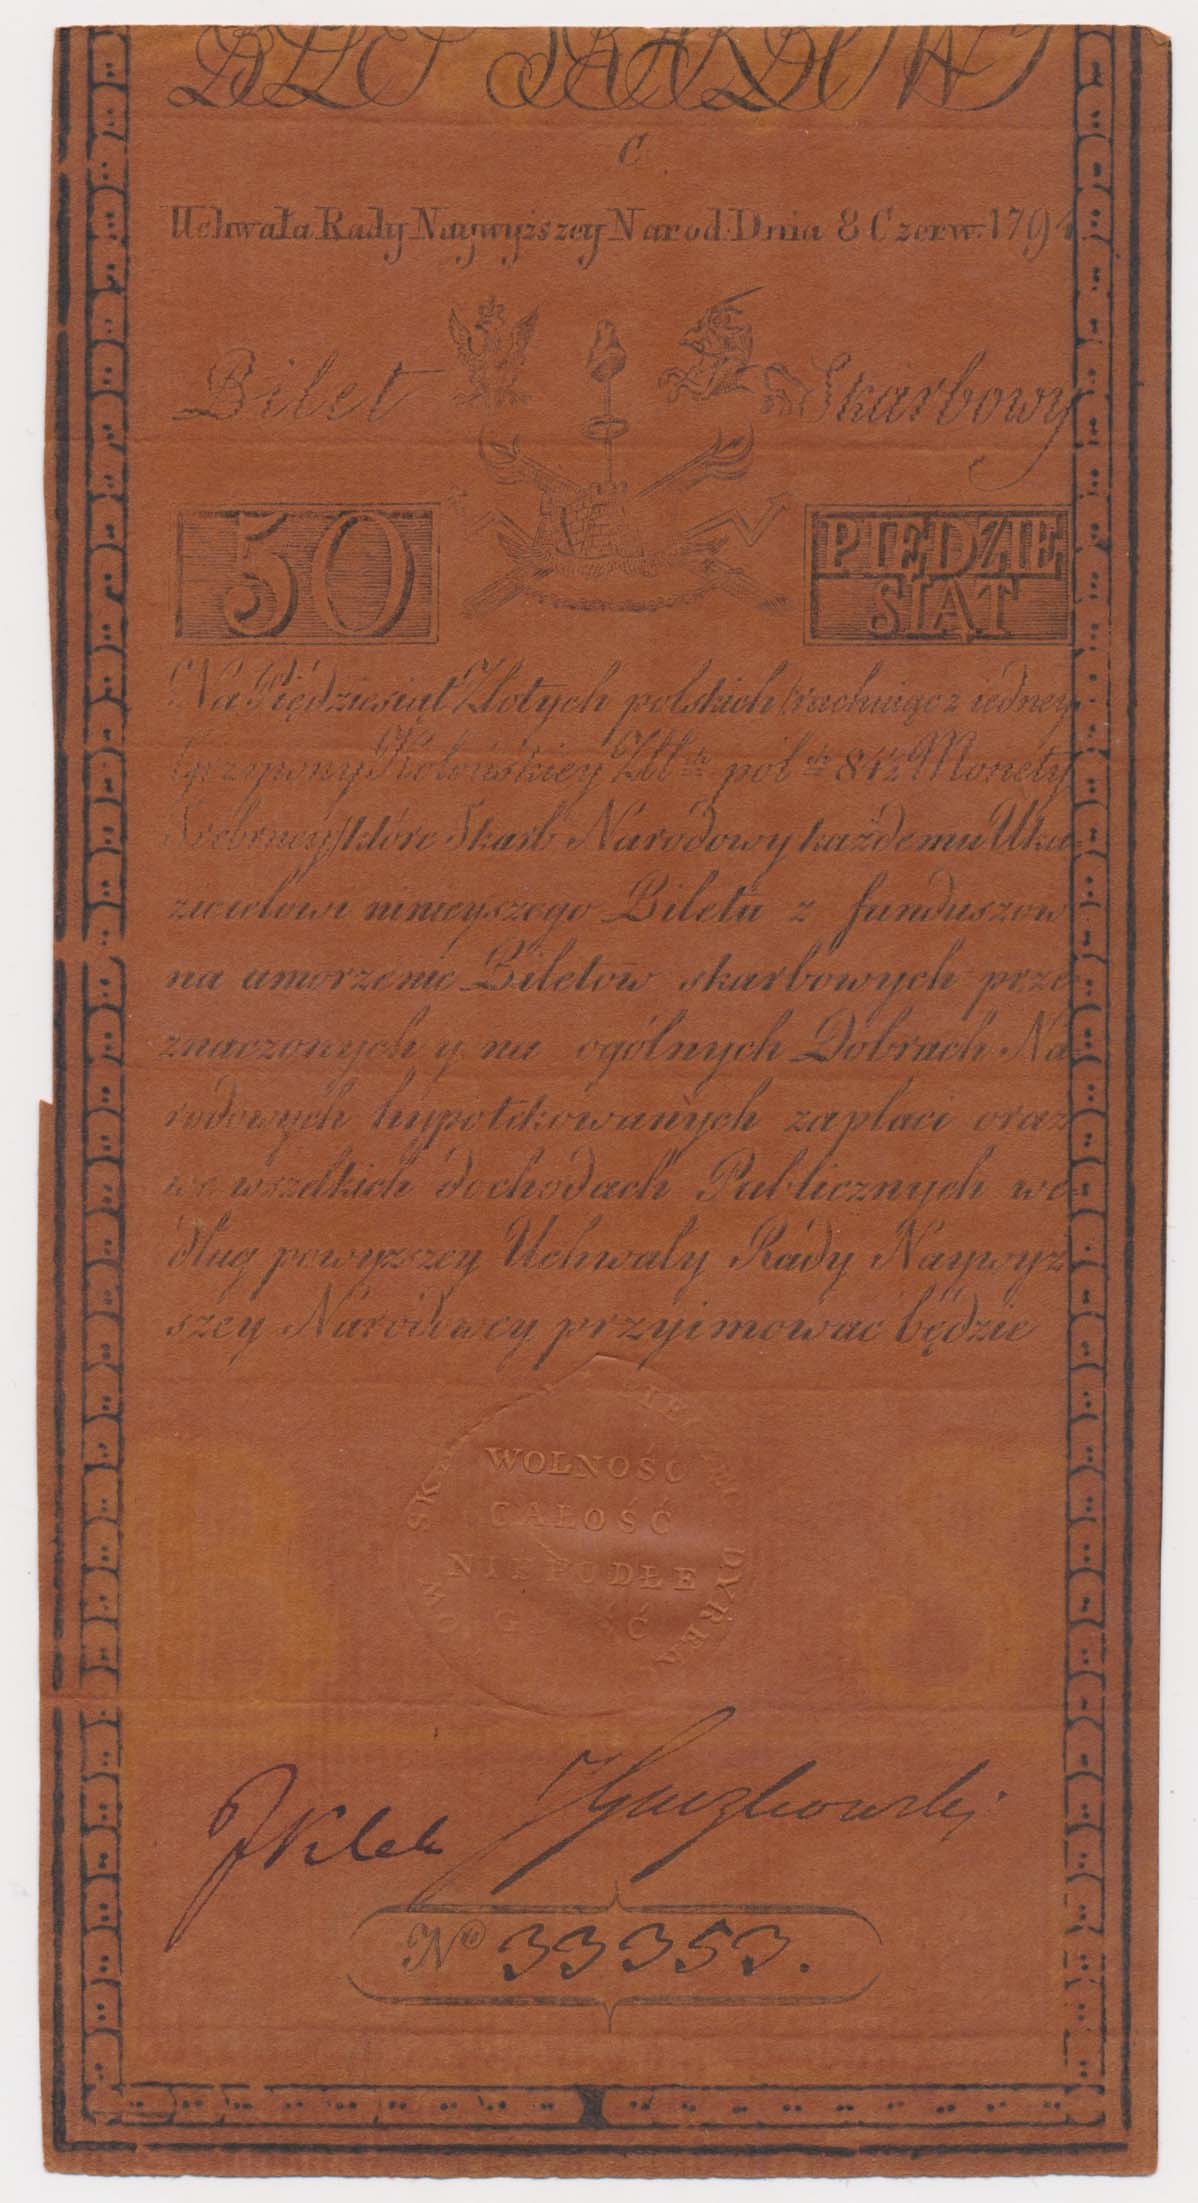 BILET SKARBOWY
C.
Uchwała Rady Naywyższey Narod: Dnia 8 Czerw: 1794.
Bilet Skarbowy
50 PIĘDZIE
SIĄT
Na Piędziesiąt Złotych polskich (rachuiącz iedney
Grzywny Kolońskiey Zł:ch pol:ch 84½ Monety
Srebrney) które Skarb Narodowy każdemu Uka-
zicielowi ninieyszego Biletu z funduszow
na umorzenie Biletów skarbowych prze-
znaczonych y na ogólnych Dobrach Na
rodowych hypotekowanych zapłaci oraz
we wszelkich dochodach Publicznych we-
dług powyższey Uchwały Rady Naywyż
szey Narodowey przyimować będzie
WOLNOŚĆ
CAŁOŚĆ
NIEPODLE
GŁOŚĆ
DYREK
No 33353.